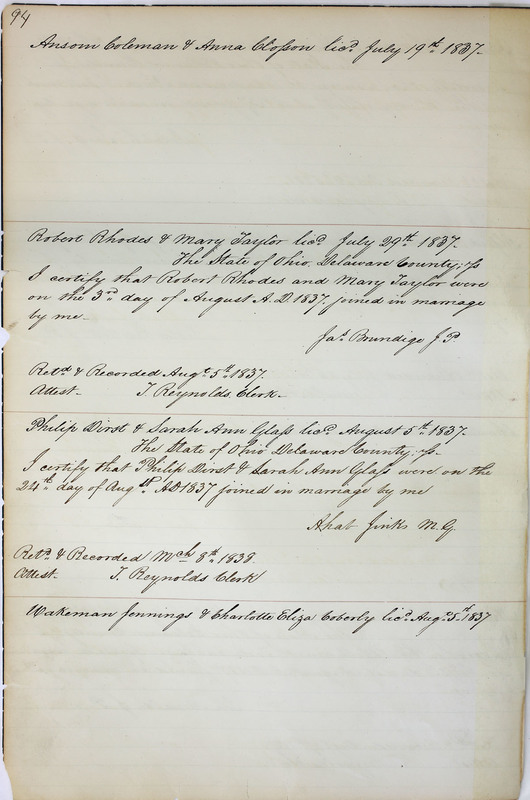 94
Ansom Coleman & Anna Closson licd July 19th 1837-
Robert Rhodes & Mary Taylor licd July 29th 1837-
The State of Ohio, Delaware County, ss
I certify that Robert Rhodes and Mary Taylor were
on the 3rd day of August A.D. 1837 joined in marriage
by me-
Jas. Brundige J.P
Retd & Recorded Augt 5th 1837.
Attest- T. Reynolds, Clerk-
Philip Dirst & Sarah Ann Glass licd August 5th 1837-
The State of Ohio Delaware County, ss-
I certify that Philip Dirst & Sarah Ann Glass were on the
24th day of Augst AD 1837 joined in marriage by me
Ahab Jinks M.G.
Retd & Recorded Mch 8th 1838.
Attest- T. Reynolds Clerk
Wakeman Jennings & Charlotte Eliza Coberly licd Augt 5th 1837